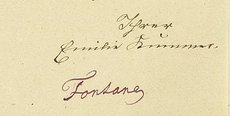 Ihrer
Emilie Kummer.
Fontane